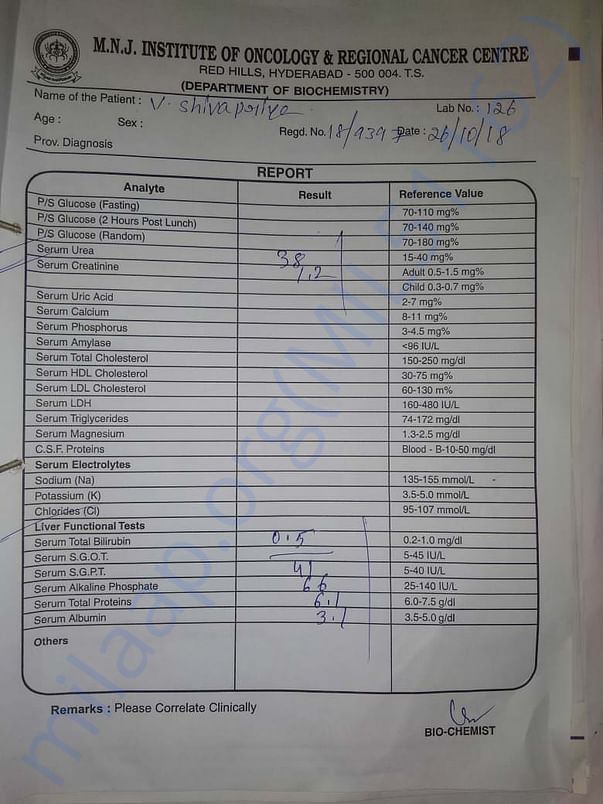 M.N.J. INSTITUTE OF ONCOLOGY & REGIONAL CANCER CENTRE
RED HILLS, HYDERABAD - 500 004. T.S.
(DEPARTMENT OF BIOCHEMISTRY)
Name of the Patient : V. Shivapriya Lab No. : 126
Age : Sex : Regd. No. 18/9397 Date : 26/10/18
Prov. Diagnosis
REPORT
Analyte Result Reference Value
P/S Glucose (Fasting) 70-110 mg%
P/S Glucose (2 Hours Post Lunch) 70-140 mg%
P/S Glucose (Random) 70-180 mg%
Serum Urea 38 15-40 mg%
Serum Creatinine 1.2 Adult 0.5-1.5 mg%
Child 0.3-0.7 mg%
Serum Uric Acid 2-7 mg%
Serum Calcium 8-11 mg%
Serum Phosphorus 3-4.5 mg%
Serum Amylase <96 IU/L
Serum Total Cholesterol 150-250 mg/dl
Serum HDL Cholesterol 30-75 mg%
Serum LDL Cholesterol 60-130 m%
Serum LDH 160-480 IU/L
Serum Triglycerides 74-172 mg/dl
Serum Magnesium 1.3-2.5 mg/dl
C.S.F. Proteins Blood - B-10-50 mg/dl
Serum Electrolytes
Sodium (Na) 135-155 mmol/L
Potassium (K) 3.5-5.0 mmol/L
Chlorides (Cl) 95-107 mmol/L
Liver Functional Tests
Serum Total Bilirubin 0.5 0.2-1.0 mg/dl
Serum S.G.O.T. 5-45 IU/L
Serum S.G.P.T. 41 5-40 IU/L
Serum Alkaline Phosphate 66 25-140 IU/L
Serum Total Proteins 6.1 6.0-7.5 g/dl
Serum Albumin 3.1 3.5-5.0 g/dl
Others
Remarks : Please Correlate Clinically
BIO-CHEMIST